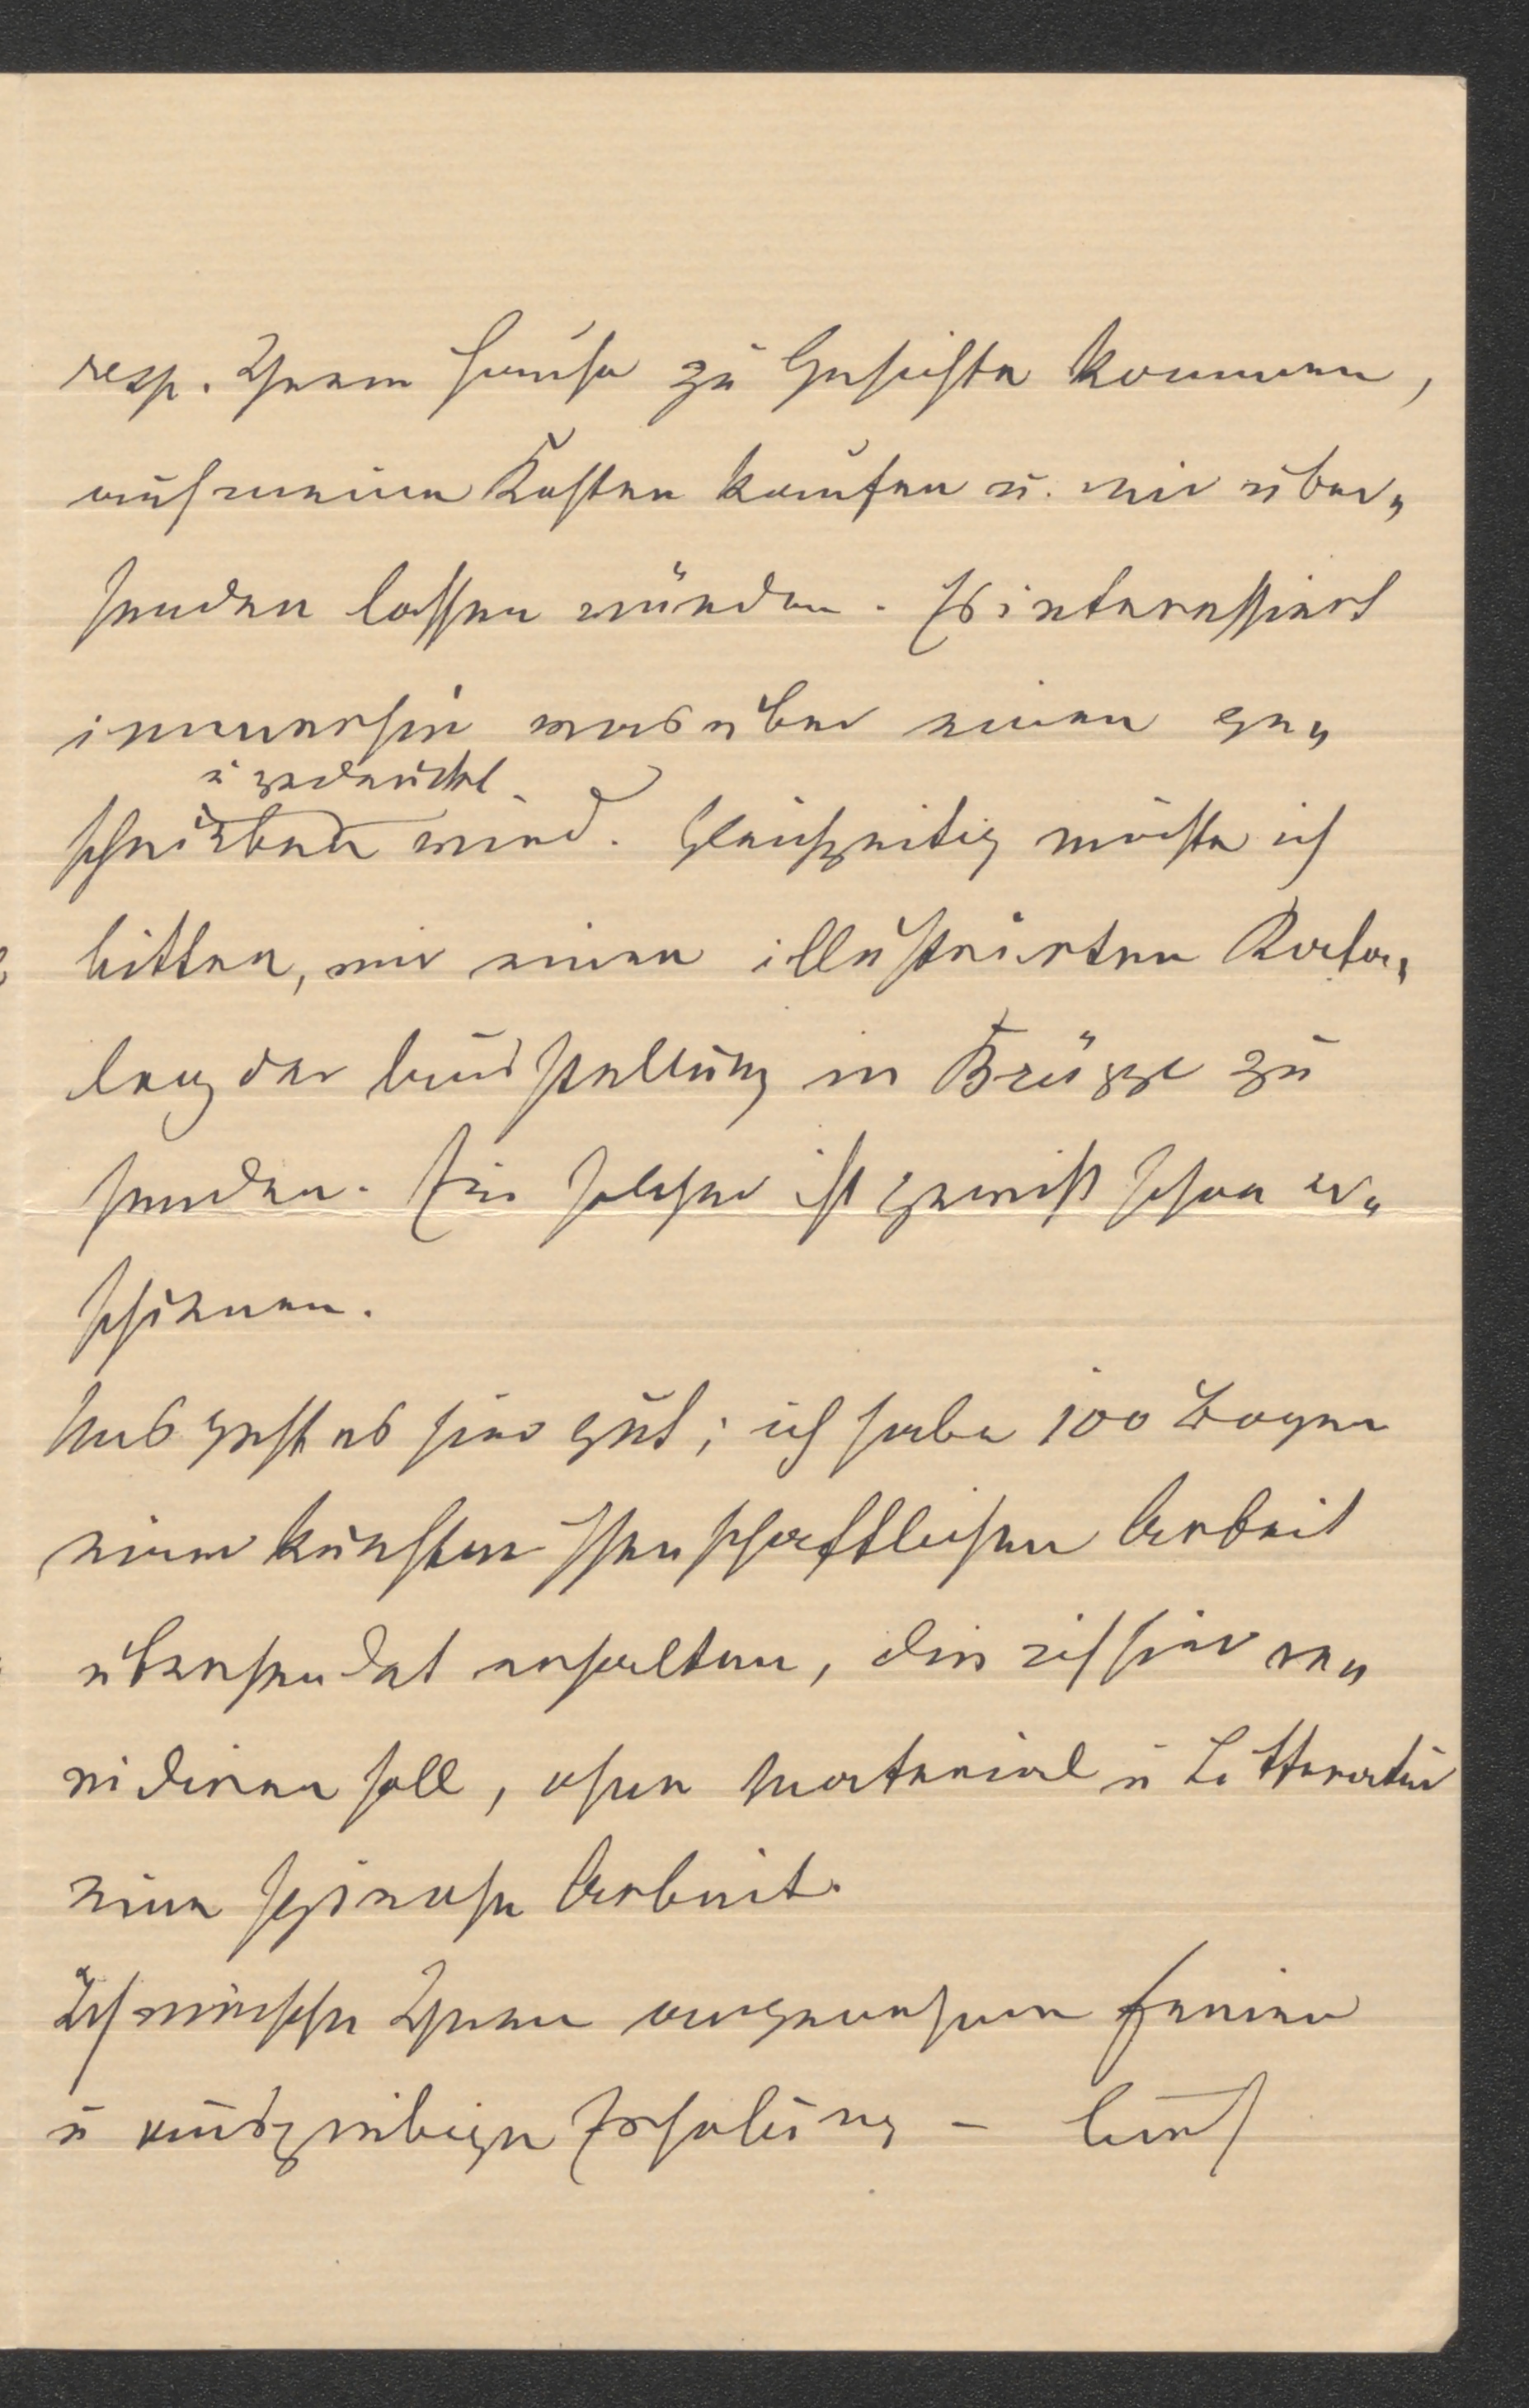 resp. Ihrem Hause zu Gesichte kommen,
auf meine Kosten kaufen u. mir über„
senden lassen würden. Es interessiert
immerhin was über einen ge„
u gedruckt
schrieben wird. Gleichzeitig möchte ich
bitten, mir einen illustrierten Kata„
log der Ausstellung in Brügge zu
senden. Ein solcher ist gewiß schon er„
schienen.
Uns geht es hier gut; ich habe 100 Bogen
einer kunstwissenschaftlichen Arbeit
übersendet erhalten, die ich hier re„
vidieren soll, ohne Material u Litteratur
eine schwache Arbeit.
Ich wünsche Ihnen angenehme Ferien
u ausgiebige Erholung – Auch